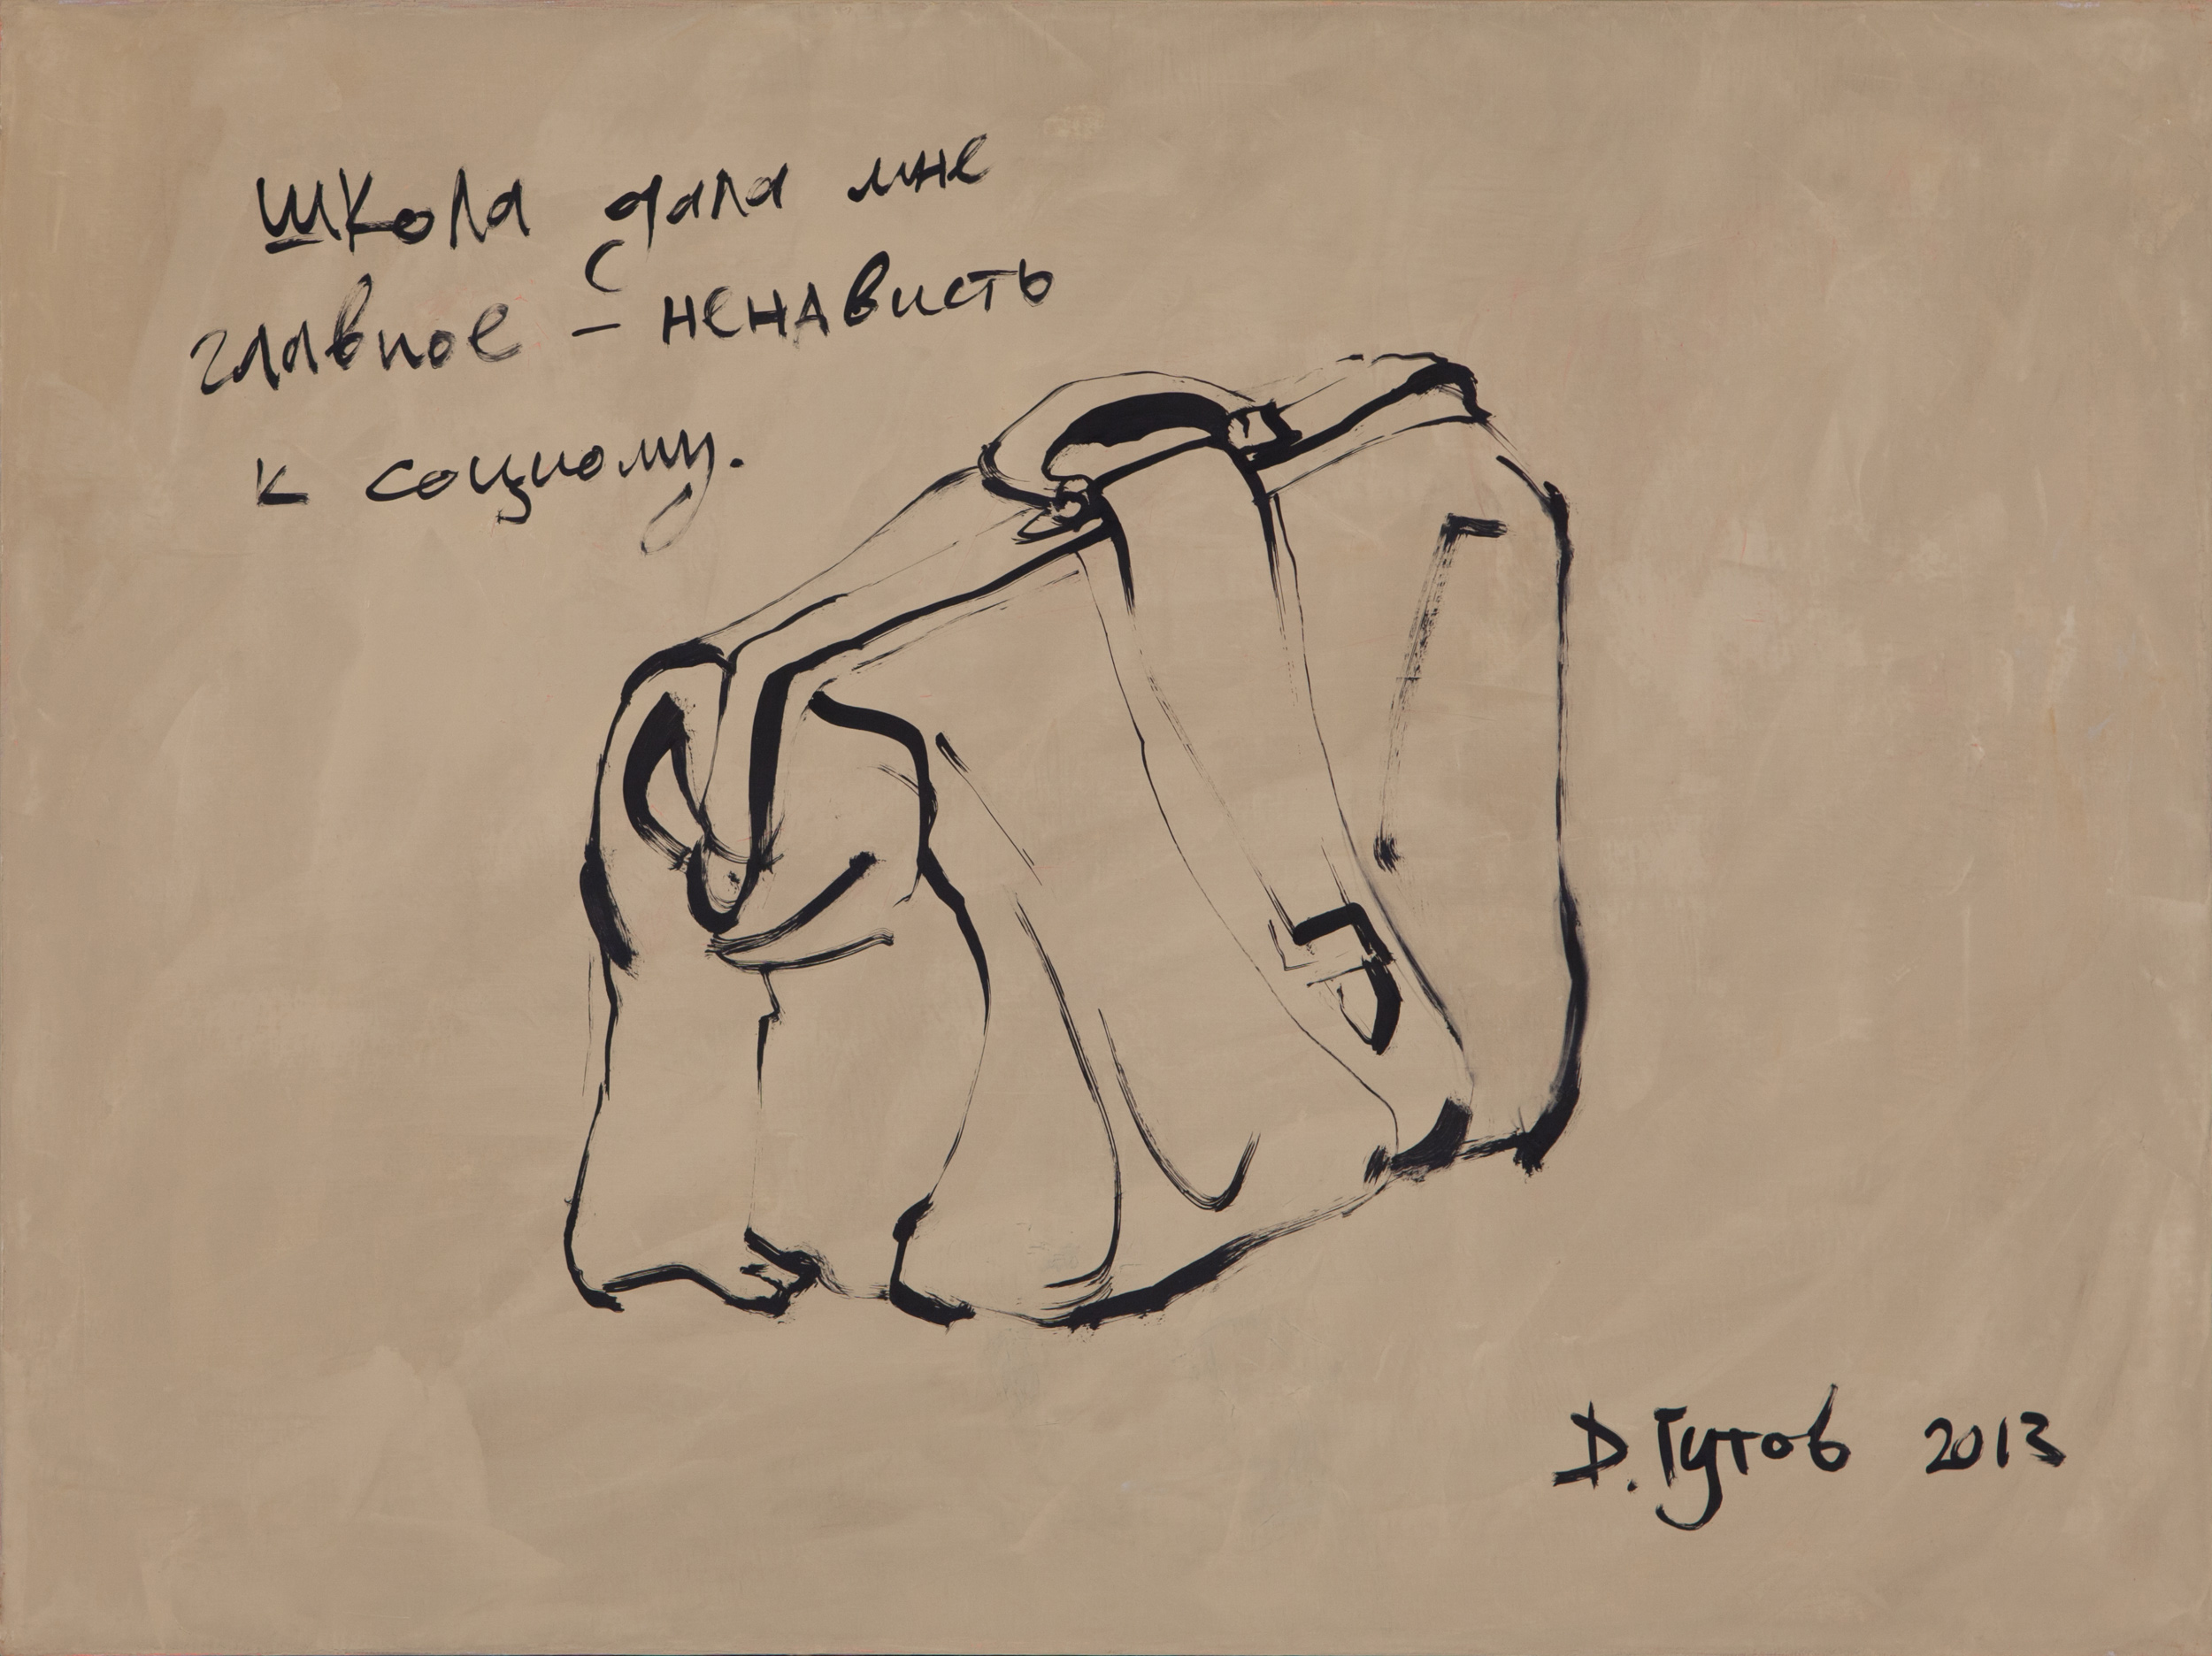 школа дала мне
главное – ненависть
к социому.
D. Гутов 2013